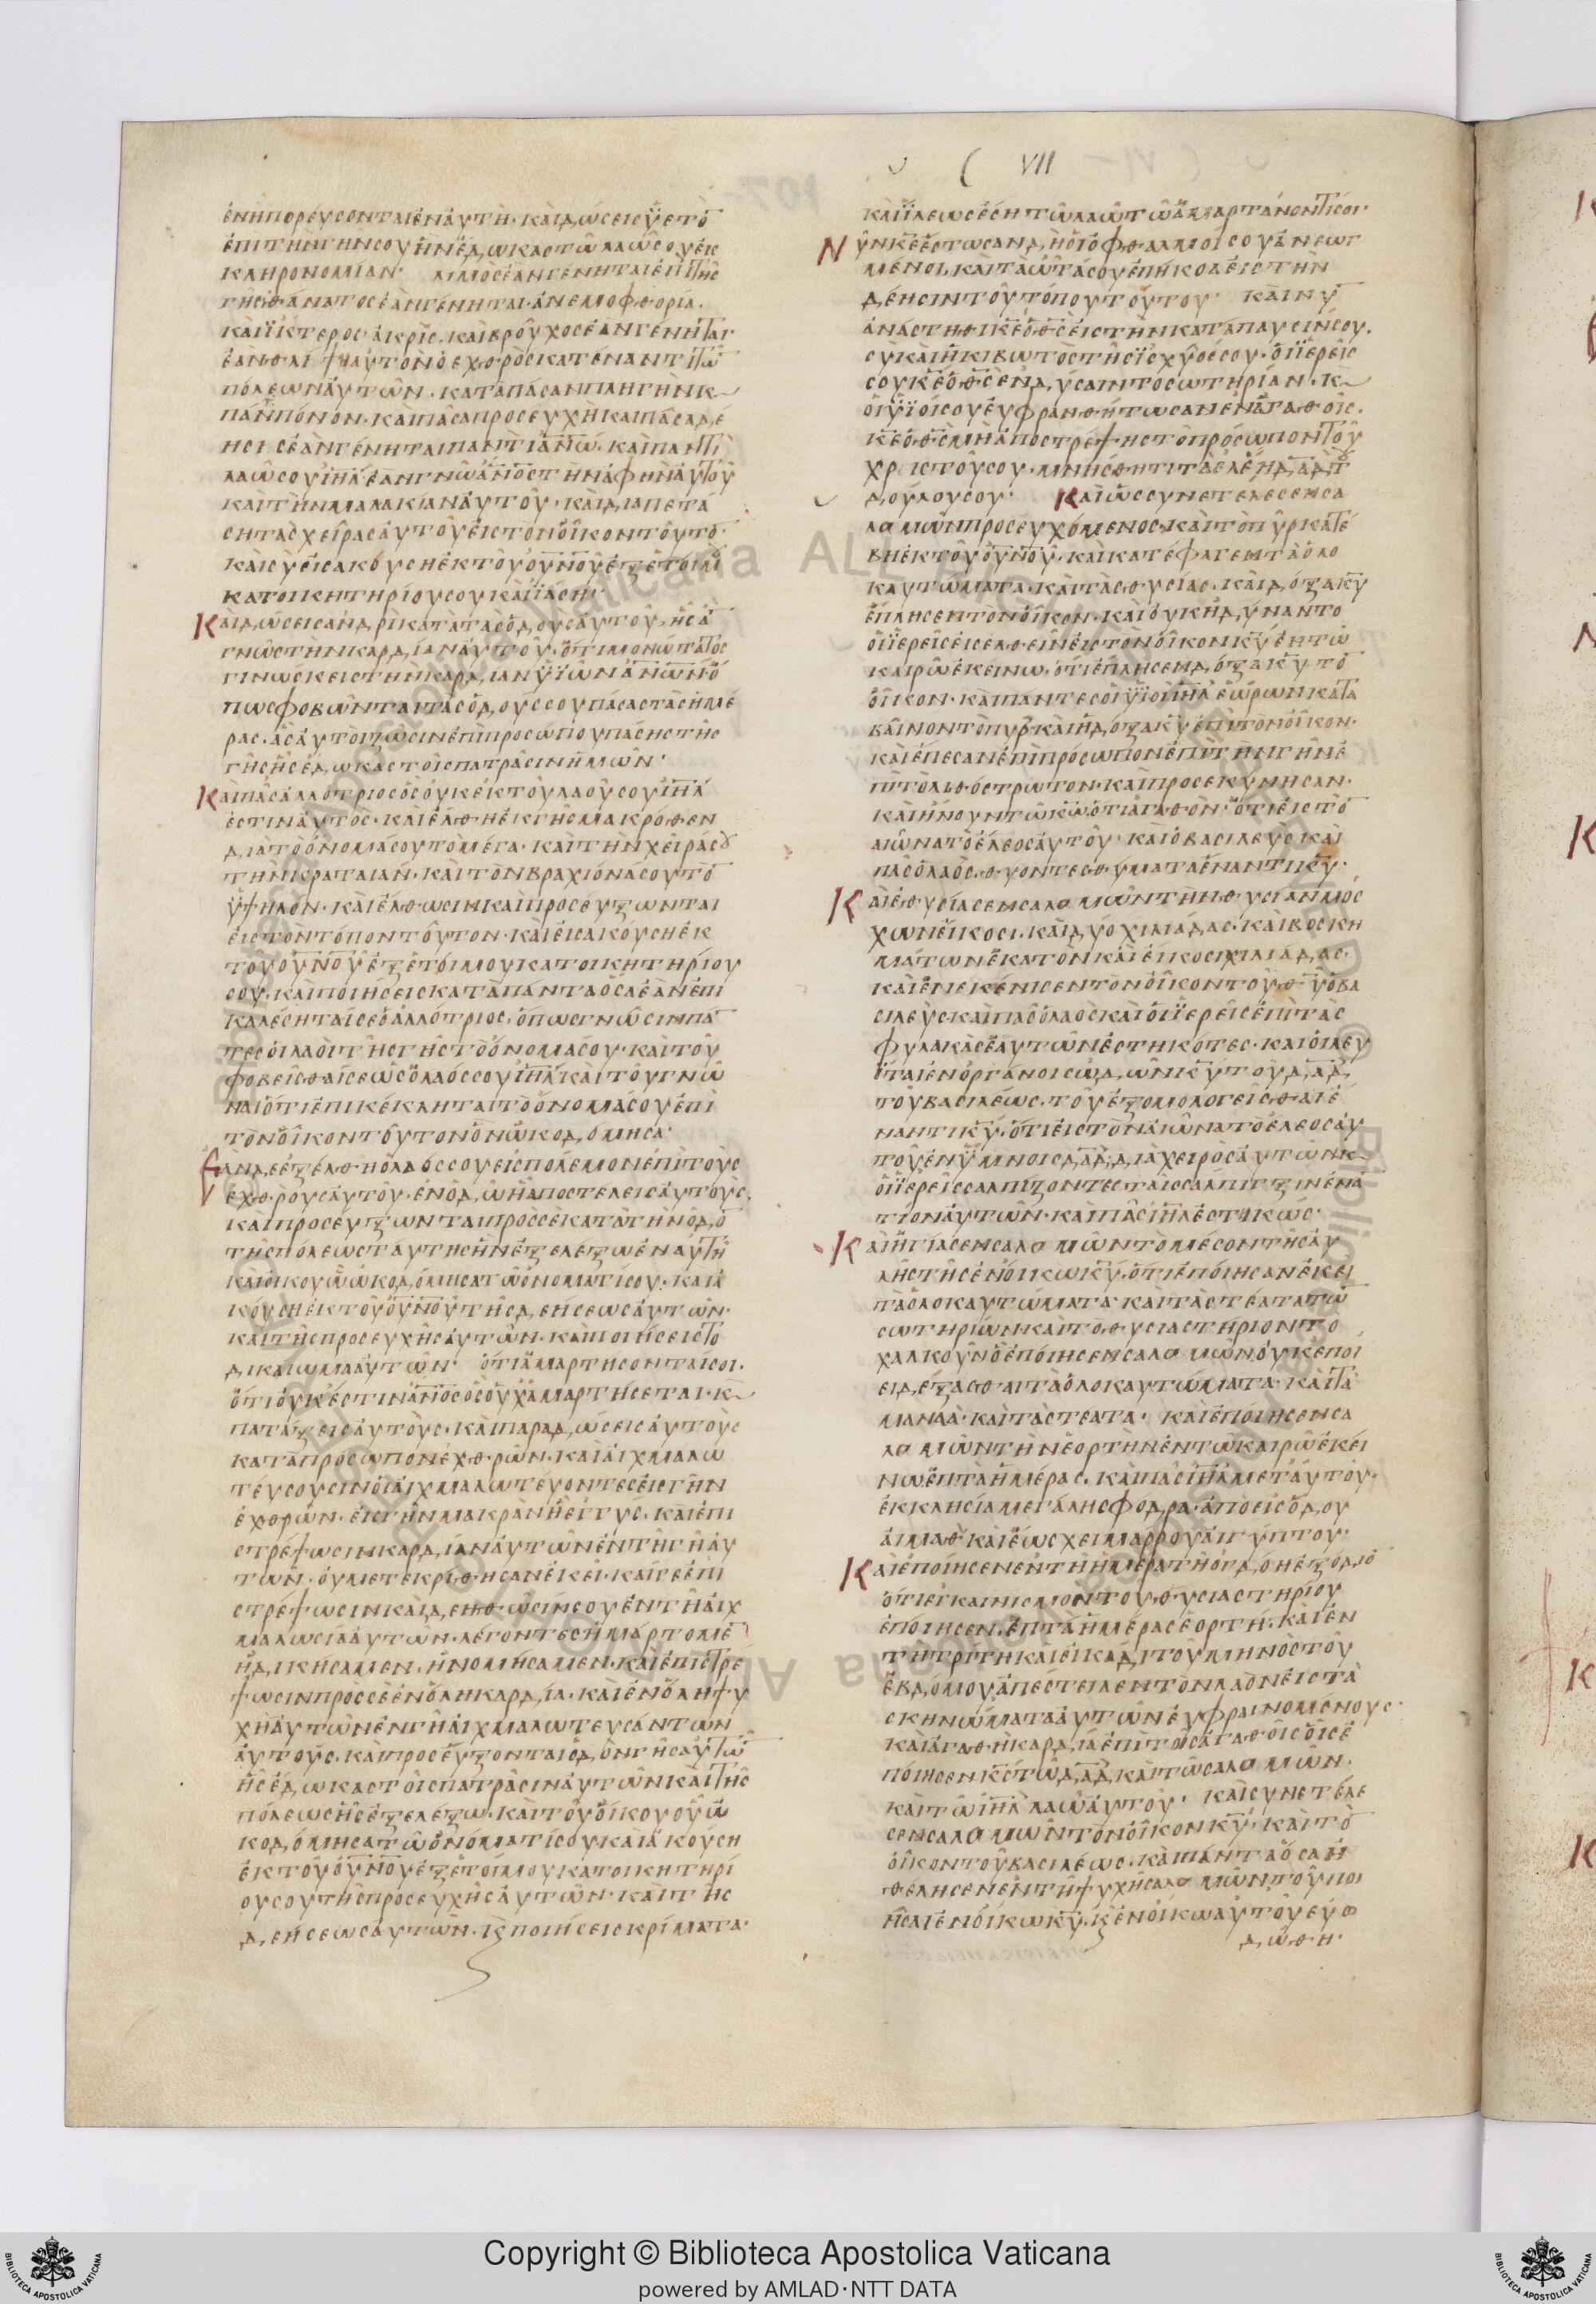 ( VII
ἐν ᾗ πορεύσονται ἐν αὐτῇ· καὶ δώσεις ὑετὸ̅
ἐπὶ τὴν γῆν σου ἣν ἔδωκας τῷ λαῷ σου εἰς
κληρονομίαν· λιμὸς ἐὰν γένηται ἐπὶ τῆς
γῆς· θάνατος ἐὰν γένηται· ἀνεμοφθορία·
καὶ ἴκτερος· ἀκρὶς· καὶ βροῦχος ἐὰν γένηται·
ἐὰν θλίψη αὐτὸν ὁ ἐχθρὸς κατέναντι τῶ̅
πόλεων αὐτῶν· κατὰ πᾶσαν πληγὴν κ
πᾶν πόνον· καὶ πᾶσα προσευχὴ καὶ πᾶσα δέ
ησις ἐὰν γένηται παντὶ α̅ν̅ω̅· καὶ παντὶ
λαῷ σου ι̅η̅λ̅ ἐὰν γνῷ α̅ν̅ο̅ς̅ τὴν ἁφὴν αὐτοῦ
καὶ τὴν μαλακίαν αὐτοῦ· καὶ διαπετά
ση τὰς χεῖρας αὐτοῦ εἰς τὸν οἶκον τοῦτο̅·
καὶ σὺ εἰσακούση ἐκ τοῦ ο̅υ̅ν̅ο̅υ̅ ἐξ ἑτοίμου
κατοικητηρίου σου καὶ ἰάση·
Καὶ δώσεις ἀνδρὶ κατὰ τὰς ὁδοὺς αὐτοῦ, ὡς ἂ̅
γνῷς τὴν καρδίαν αὐτοῦ· ὅτι μονώτατος
γινώσκεις τὴν καρδίαν υἱῶν α̅ν̅ω̅ν̅ ὅ
πως φοβῶνται τὰς ὁδούς σου πάσας τὰς ἡμέ
ρας· ἃς αὐτοὶ ζῶσιν ἐπὶ προσώπου πάσης τῆς
γῆς ἧς ἔδωκας τοῖς πατράσιν ἡμῶν·
Καὶ πᾶς ἀλλότριος ὃς οὐκ ἐκ τοῦ λαοῦ σου ι̅η̅λ̅
ἐστὶν αὐτός· καὶ ἔλθη ἐκ γῆς μακρόθεν
διὰ τὸ ὄνομά σου τὸ μέγα· καὶ τὴν χεῖρά σου
τὴν κραταιάν· καὶ τὸν βραχίονά σου τὸ̅
ὑψηλόν· καὶ ἔλθωσιν καὶ προσεύξωνται
εἰς τὸν τόπον τοῦτον· καὶ εἰσακούση ἐκ
τοῦ ο̅υ̅ν̅ο̅υ̅ ἐξ ἑτοίμου κατοικητηρίου
σου· καὶ ποιήσεις κατὰ πάντα ὅσα ἐὰν ἐπι
καλέσηταί σε ὁ ἀλλότριος, ὅπως γνῶσιν πά̅
τες οἱ λαοὶ τῆς γῆς τὸ ὄνομά σου· καὶ τοῦ
φοβεῖσθαί σε ὡς ὁ λαός σου ι̅η̅λ̅ καὶ τοῦ γνῶ
ναι ὅτι ἐπικέκληται τὸ ὄνομά σου ἐπὶ
τὸν οἶκον τοῦτον ὃν ᾠκοδόμησα·
Ἐὰν δὲ ἐξέλθη ὁ λαός σου εἰς πόλεμον ἐπὶ τοὺς
ἐχθροὺς αὐτοῦ· ἐν ὁδῷ ᾗ ἀποστελεῖς αὐτούς,
καὶ προσεύξωνται πρὸς σὲ κατὰ τὴν ὁδὸ̅
τῆς πόλεως ταύτης ἣν ἐξελέξω ἐν αὐτῆ
καὶ οἴκου ᾧ ᾠκοδόμησα τῷ ὀνόματί σου· καὶ ἀ
κούση ἐκ τοῦ ο̅υ̅ν̅ο̅υ̅ τῆς δεήσεως αὐτῶν·
καὶ τῆς προσευχῆς αὐτῶν· καὶ ποιήσεις τὸ
δικαίωμα αὐτῶν· ὅτι ἁμαρτήσονταί σοι·
ὅτι οὐκ ἔστιν α̅ν̅ο̅ς̅ ὃς οὐχ ἁμαρτήσεται· κ
πατάξεις αὐτούς· καὶ παραδώσεις αὐτοὺς
κατὰ πρόσωπον ἐχθρῶν· καὶ αἰχμαλω
τεύσουσιν οἱ αἰχμαλωτεύοντες εἰς γῆν
ἐχθρῶν· εἰς γῆν μακρὰν ἢ ἐγγύς· καὶ ἐπι
στρέψωσιν καρδίαν αὐτῶν ἐν τῇ γῇ αὐ
τῶν· οὗ μετεκρίθησαν ἐκεῖ· καί γε ἐπι
στρέψωσιν καὶ δεηθῶσίν σου ἐν τῇ αἰχ
μαλωσίᾳ αὐτῶν· λέγοντες ἡμάρτομε̅
ἠδικήσαμεν· ἠνομήσαμεν· καὶ ἐπιστρέ
ψωσιν πρὸς σὲ ἐν ὅλη καρδία· καὶ ἐν ὅλη ψυ
χῇ αὐτῶν ἐν γῇ αἰχμαλωτευσάντων
αὐτούς· καὶ προσεύξονται ὁδὸν γῆς αὐτῶ̅
ἧς ἔδωκας τοῖς πατράσιν αὐτῶν καὶ τῆς
πόλεως ἧς ἐξελέξω· καὶ τοῦ οἴκου οὗ ᾠ
κοδόμησα τῷ ὀνόματί σου καὶ ἀκούση
ἐκ τοῦ ο̅υ̅ν̅ο̅υ̅ ἐξ ἑτοίμου κατοικητηρί
ου σου τῆς προσευχῆς αὐτῶν· καὶ τῆς
δεήσεως αὐτῶν· κ̀ ποιήσεις κρίματα·
καὶ ἵλεως ἔση τῷ λαῷ τῷ ἁμαρτάνοντί σοι·
Νῦν κ̅ε̅ ἔστωσαν δὴ οἱ ὀφθαλμοί σου ἀνεῳγ
μένοι, καὶ τὰ ὦτά σου ἐπήκοα εἰς τὴν
δέησιν τοῦ τόπου τούτου· καὶ νῦ̅
ἀνάστηθι κ̅ε̅ ὁ θ̅ς̅ εἰς τὴν κατάπαυσίν σου,
σὺ καὶ ἡ κιβωτὸς τῆς ἰσχύος σου· οἱ ἱερεῖς
σου κ̅ε̅ ὁ θ̅ς̅ ἐνδύσαιντο σωτηρίαν· κ
οἱ υἱοί σου εὐφρανθήτωσαν ἐν ἀγαθοῖς·
κ̅ε̅ ὁ θ̅ς̅ μὴ ἀποστρέψης τὸ πρόσωπον τοῦ
χριστοῦ σου· μνήσθητι τὰ ἐλέη δ̅α̅δ̅ τ̅
δούλου σου· Καὶ ὡς συνετέλεσεν σα
λομὼν προσευχόμενος, καὶ τὸ πῦρ κατέ
βη ἐκ τοῦ ο̅υ̅ν̅ο̅υ̅· καὶ κατέφαγεν τὰ ὁλο
καυτώματα· καὶ τὰς θυσίας· καὶ δόξα κ̅υ̅
ἔπλησεν τὸν οἶκον· καὶ οὐκ ἠδύναντο
οἱ ἱερεῖς εἰσελθεῖν εἰς τὸν οἶκον κ̅υ̅ ἐν τῷ
καιρῷ ἐκείνω· ὅτι ἔπλησεν δόξα κ̅υ̅ τὸ̅
οἶκον· καὶ πάντες οἱ υἱοὶ ι̅η̅λ̅ ἑώρων κατα
βαῖνον τὸ πῦρ καὶ ἡ δόξα κ̅υ̅ ἐπὶ τὸν οἶκον·
καὶ ἔπεσαν ἐπὶ πρόσωπον ἐπὶ τὴν γῆν ἐ
πὶ τὸ λιθόστρωτον· καὶ προσεκύνησαν·
καὶ ἤνουν τῷ κ̅ω̅ ὅτι ἀγαθόν· ὅτι εἰς τὸ̅
αἰῶνα τὸ ἔλεος αὐτοῦ· καὶ ὁ βασιλεὺς καὶ
πᾶς ὁ λαὸς, θύοντες θύματα ἔναντι κ̅υ̅·
Καὶ ἐθυσίασεν σαλομὼν τὴν θυσίαν μόσ
χων εἴκοσι· καὶ δύο χιλιάδας· καὶ βοσκη
μάτων ἑκατὸν καὶ εἴκοσι χιλιάδας·
καὶ ἐνεκαίνισεν τὸν οἶκον τοῦ θ̅υ̅ ὁ βα
σιλεύς· καὶ πᾶς ὁ λαὸς καὶ οἱ ἱερεῖς ἐπὶ τὰς
φυλακὰς ἑαυτῶν ἑστηκότες· καὶ οἱ λευ
ῖται ἐν ὀργάνοις ᾠδῶν κ̅υ̅ τοῦ δ̅α̅δ̅
τοῦ βασιλέως, τοῦ ἐξομολογεῖσθαι ἔ
ναντι κ̅υ̅· ὅτι εἰς τὸν αἰῶνα τὸ ἔλεος αὐ
τοῦ ἐν ὕμνοις δ̅α̅δ̅ διὰ χειρὸς αὐτῶν κ
οἱ ἱερεῖς σαλπίζοντες ταῖς σάλπιγξιν ἐνα̅
τίον αὐτῶν· καὶ πᾶς ι̅η̅λ̅ ἑστηκώς·
Καὶ ἡγίασεν σαλομὼν τὸ μέσον τῆς αὐ
λῆς τῆς ἐν οἴκω κ̅υ̅· ὅτι ἐποίησαν ἐκεῖ
τὰ ὁλοκαυτώματα καὶ τὰ στέατα τῶ̅
σωτηρίων καὶ τὸ θυσιαστήριον τὸ
χαλκοῦν ὃ ἐποίησεν σαλομὼν οὐκ ἐποί
ει δέξασθαι τὰ ὁλοκαυτώματα· καὶ τὰ
μαναὰ· καὶ τὰ στέατα· καὶ ἐποίησεν σα
λομὼν τὴν ἑορτὴν ἐν τῷ καιρῷ ἐκεί
νω ἑπτὰ ἡμέρας· καὶ πᾶς ι̅η̅λ̅ μετ' αὐτοῦ·
ἐκκλησία μεγάλη σφόδρα· ἀπὸ εἰσόδου
αἱμὰθ καὶ ἕως χειμάρρου αἰγύπτου·
Καὶ ἐποίησεν ἐν τῇ ἡμέρα τῇ ὀγδόη ἐξόδιο̅
ὅτι ἐγκαινισμὸν τοῦ θυσιαστηρίου
ἐποίησεν, ἑπτὰ ἡμέρας ἑορτή· καὶ ἐν
τῇ τρίτη καὶ εἰκάδι τοῦ μηνὸς τοῦ
ἑβδόμου ἀπέστειλεν τὸν λαὸν εἰς τὰ
σκηνώματα αὐτῶν εὐφραινομένους·
καὶ ἀγαθῇ καρδία ἐπὶ τοῖς ἀγαθοῖς οἷς ἐ
ποίησεν κ̅ς̅ τῷ δ̅α̅δ̅ καὶ τῷ σαλομών·
καὶ τῷ ι̅η̅λ̅ λαῷ αὐτοῦ· καὶ συνετέλε
σεν σαλομὼν τὸν οἶκον κ̅υ̅· καὶ τὸ̅
οἶκον τοῦ βασιλέως· καὶ πάντα ὅσα ἠ
θέλησεν ἐν τῇ ψυχῇ σαλομὼν τοῦ ποι
ῆσαι ἐν οἴκω κ̅υ̅· κ̀ ἐν οἴκω αὐτοῦ εὐο
δώθη·
Copyright © Biblioteca Apostolica Vaticana
powered by AMLAD·NTT DATA